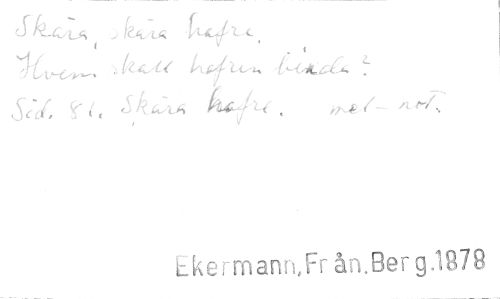 Skära, skära hafre.
Hvem skall hafren binda?
Sid. 81. Skära hafre. mel-not.
Ekermann, Från. Berg. 1878